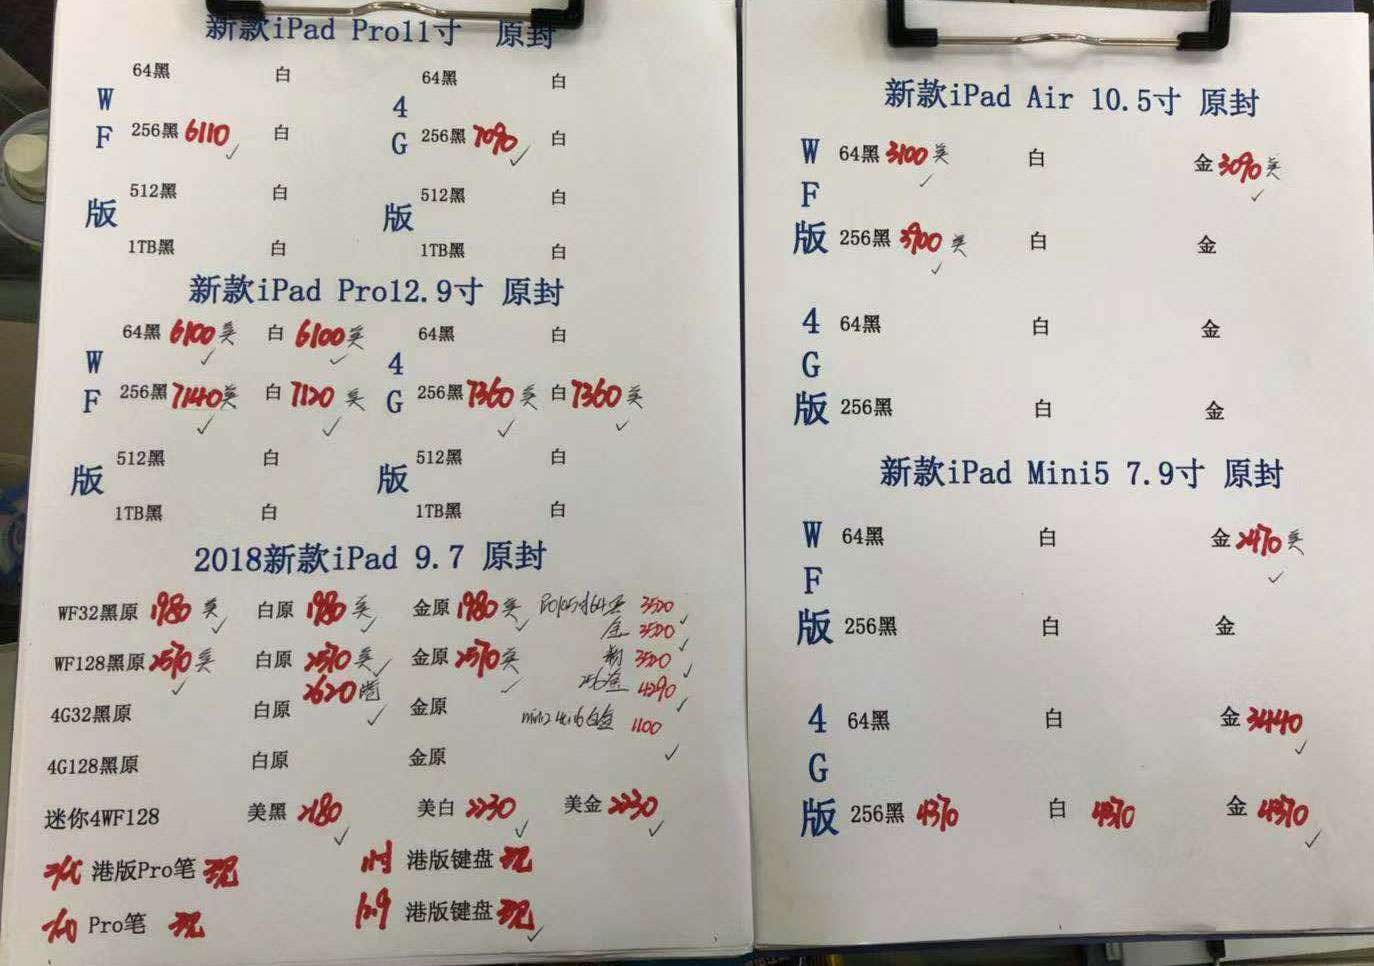 新款iPad Pro11寸 原封
WF版
64黑 白
256黑 6110 白
512黑 白
1TB黑 白
4G版
64黑 白
256黑 7090 白
512黑 白
1TB黑 白
新款iPad Pro12.9寸 原封
WF版
64黑 6100 美 白 6100 美
256黑 7140 美 白 7120 美
512黑 白
1TB黑 白
4G版
64黑 白
256黑 7360 美 白 7360 美
512黑 白
1TB黑 白
2018新款iPad 9.7 原封
WF32黑原 1980 美 白原 1980 美 金原 1980 美
WF128黑原 2570 美 白原 2570 美 金原 2570 美
2620
4G32黑原 白原 金原
4G128黑原 白原 金原
3500
金 3500
3520
256金 4290
1100
迷你4WF128 美黑 2180 美白 2230 美金 2230
港版Pro笔 现 11寸 港版键盘 现
Pro笔 现 12.9 港版键盘 现
新款iPad Air 10.5寸 原封
WF版
64黑 3100 美 白 金 3090 美
256黑 3900 美 白 金
4G版
64黑 白 金
256黑 白 金
新款iPad Mini5 7.9寸 原封
WF版
64黑 白 金 2470 美
256黑 白 金
4G版
64黑 白 金 3440
256黑 4370 白 4370 金 4370